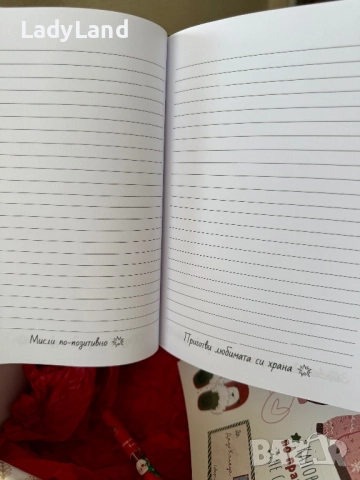 LadyLand
Мисли по-позитивно
Приготви любимата си храна
bazar